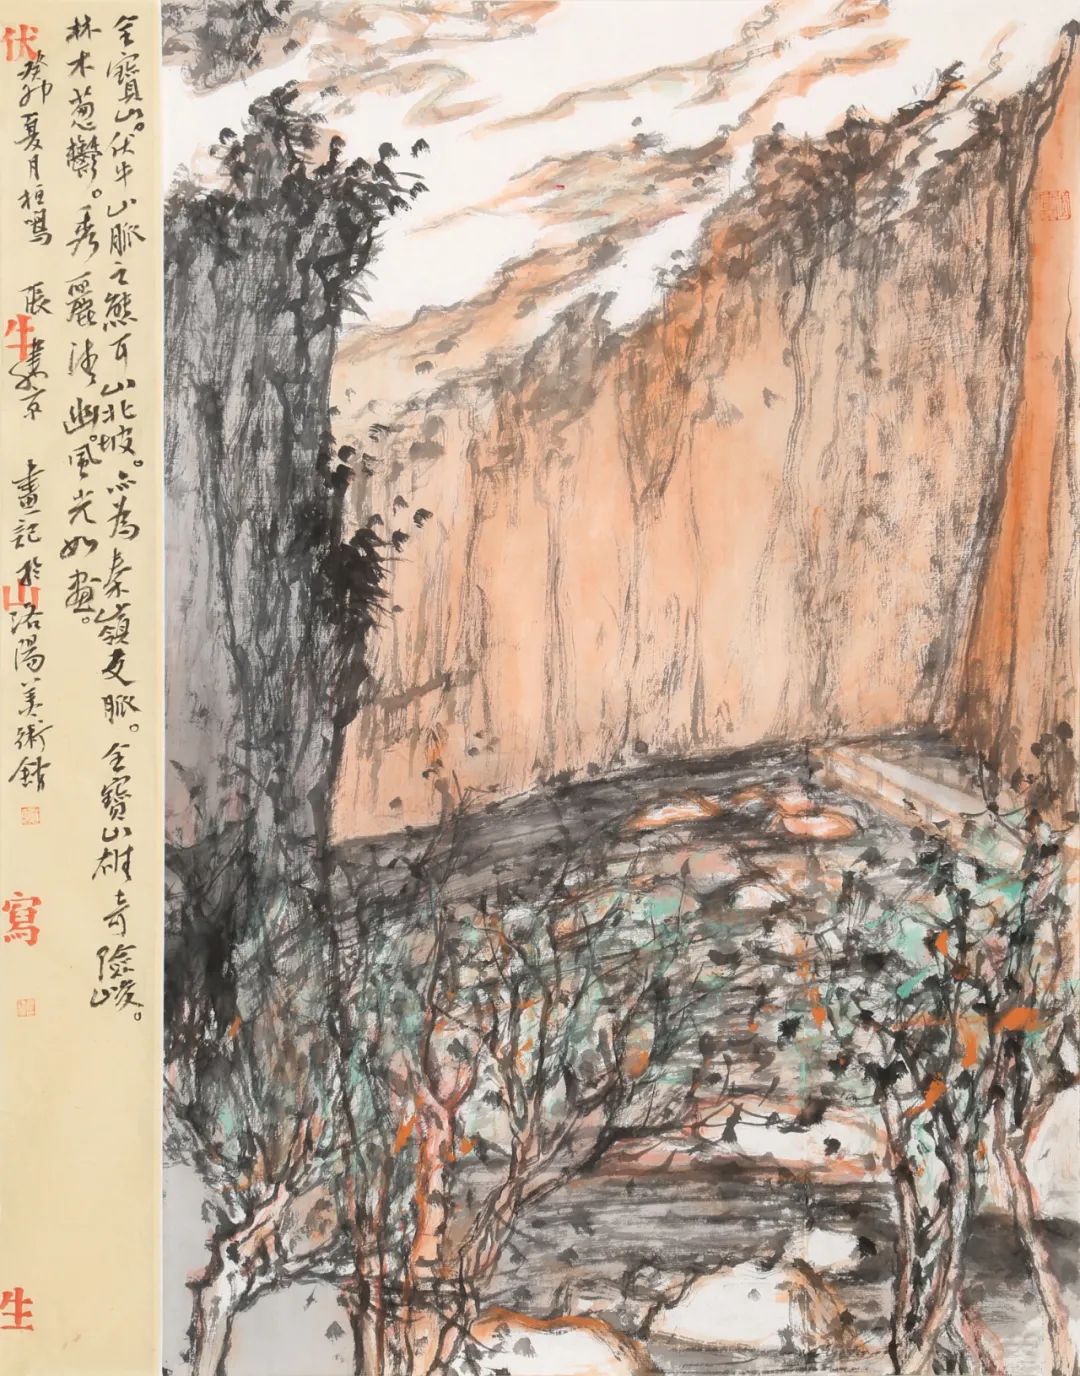 全寶山。伏牛山脈之熊耳山北坡。亦為秦嶺支脈。全寶山雄奇險峻。
林木蔥鬱。秀麗清幽。風光如畫。
癸卯夏月 鳴 張 京 畫記於洛陽美術館
伏牛山寫生